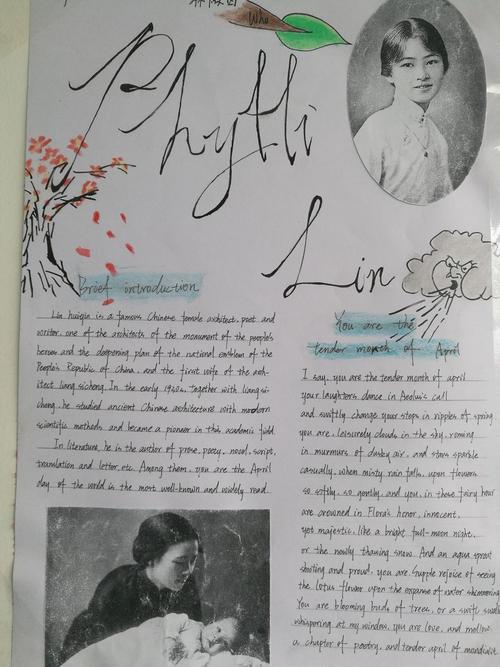 Who
Phylli
Lin
Brief introduction
Lin huiyin is a famous Chinese female architect, poet and
writer, one of the architects of the monument of the people's
heroes and the deepening plan of the national emblem of the
People's Republic of China, and the first wife of the arch-
itect liang sicheng. In the early 1930s, together with liang si-
cheng, he studied ancient Chinese architecture with modern
scientific methods and became a pioneer in this academic field.
In literature, he is the author of prose, poetry, novel, script,
translation and letter, etc. Among them, you are the April
day of the world is the most well-known and widely read.
You are the
tender month of April
I say, you are the tender month of april
your laughters dance in Aeolus's call
and swiftly change your steps in ripples of spring
you are, leisurely clouds in the sky, roming
in murmurs of dusky air, and stars sparkle
casually, when misty rain falls, upon flowers
so softly, so gently, and you, in those fairy hour
are crowned in Flora's honor, innocent,
yet majestic, like a bright full-moon night,
or the newly thawing snow. And an aqua sprout
shooting and proud, you are, supple rejoice of seeing
the lotus flower upon the expanse of water shimmering
You are blooming buds of trees, or a swift swallow
whispering at my window, you are love, and mellow
a chapter of poetry, and tender april of